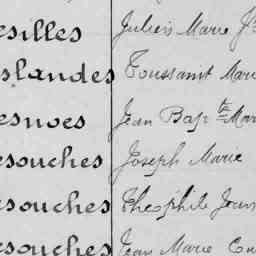 esilles Julien Marie Jh
slandes Toussaint Mari
esnoes Jean Bapte Mari
esouches Joseph Marie
esouches Théophile Jean
esouches Jean Marie